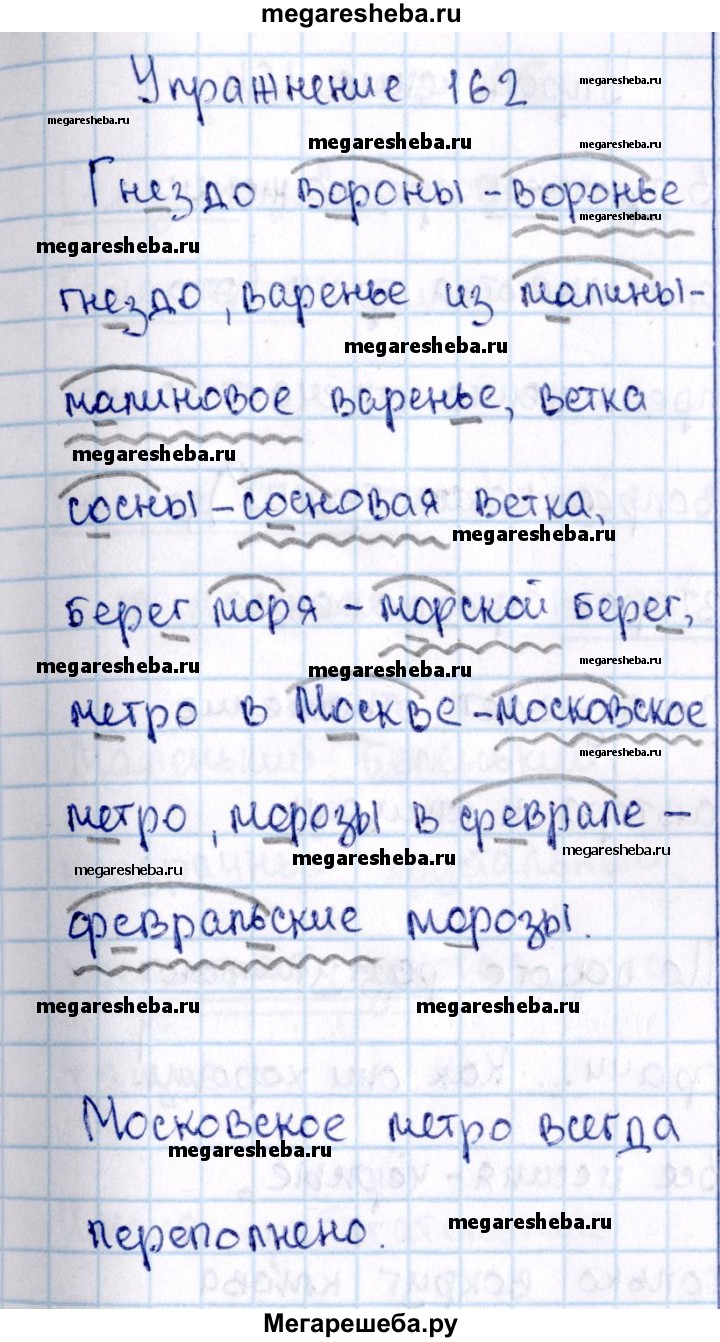 megaresheba.ru
Упражнение 162
megaresheba.ru
megaresheba.ru
megaresheba.ru
megaresheba.ru
Гнездо вороны - воронье
megaresheba.ru
megaresheba.ru
гнездо, варенье из малины -
megaresheba.ru
малиновое варенье, ветка
megaresheba.ru
сосны - сосновая ветка,
megaresheba.ru
берег моря - морской берег,
megaresheba.ru
megaresheba.ru
megaresheba.ru
метро в Москве - московское
megaresheba.ru
метро, морозы в феврале -
megaresheba.ru
megaresheba.ru
megaresheba.ru
февральские морозы.
megaresheba.ru
megaresheba.ru
Московское метро всегда
megaresheba.ru
переполнено.
megaresheba.ru
Мегарешеба.ру